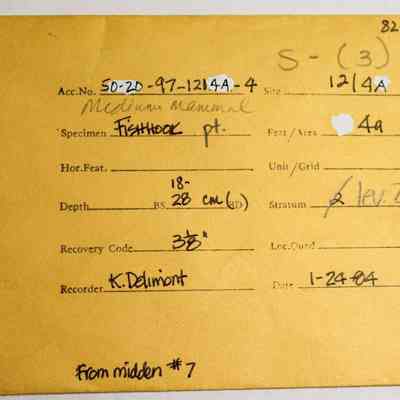 82
S-(3)
Acc.No. 50-20-97-1214A-4 Site 1214A
Medium Mammal
Specimen FISHHOOK pt. Feat/Area 4a
Hor.Feat. Unit/Grid
Depth BS. 18-28 cm (BD) Stratum 2 lev.
Recovery Code 3 1/8" Loc.Quad
Recorder K. Delimont Date 1-24-84
From midden #7